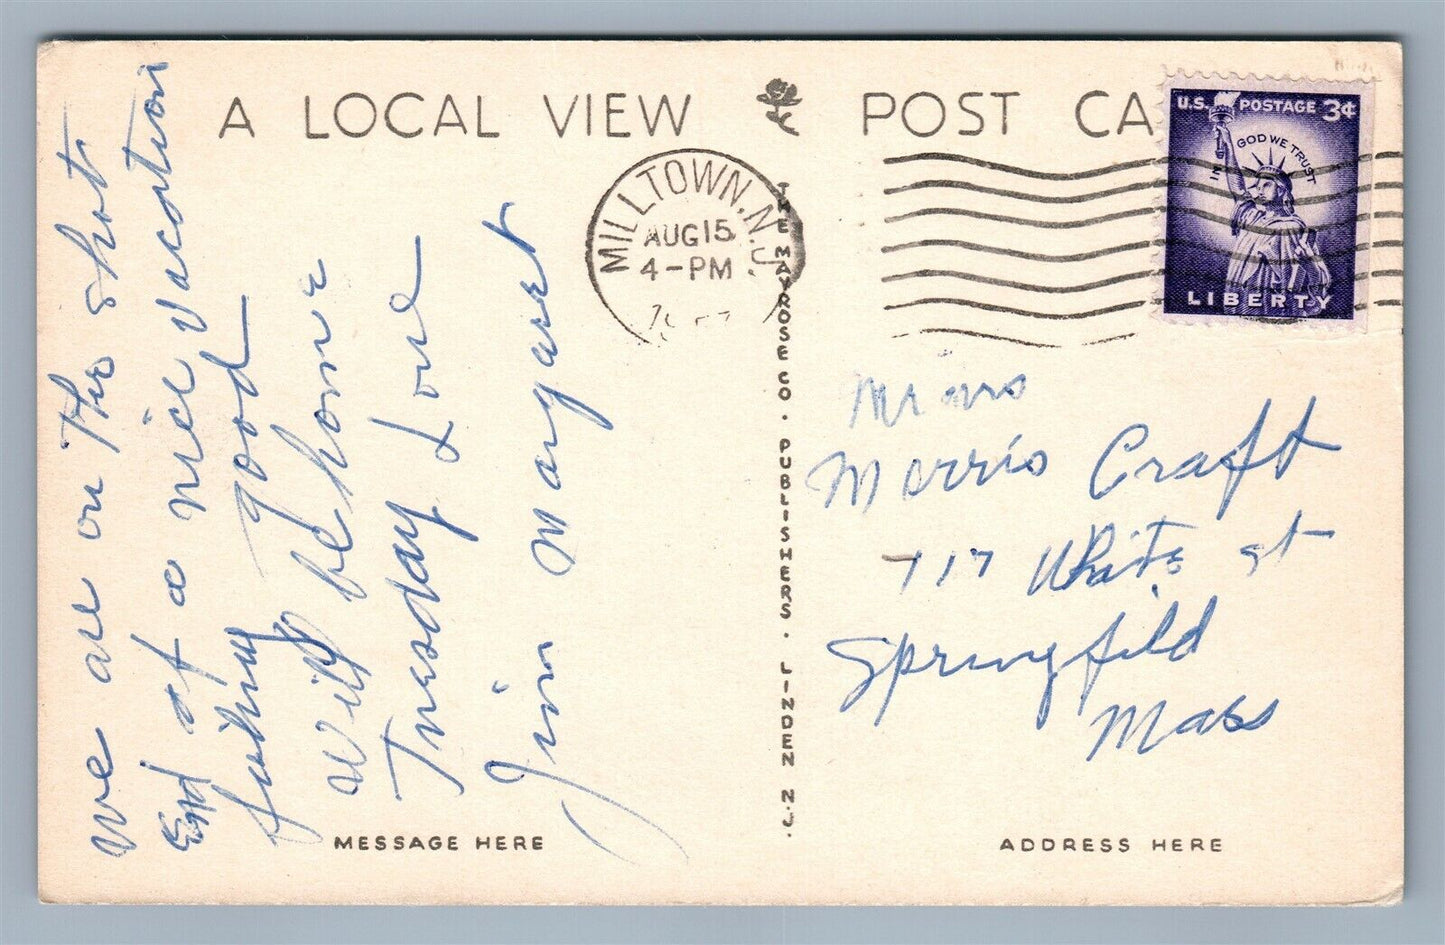 A LOCAL VIEW POST CA
U.S. POSTAGE 3¢
IN GOD WE TRUST
LIBERTY
MILLTOWN, N.J.
AUG 15
4-PM
We are on the short
End of a nice vacation
fishing good
will be home
Tuesday Love
Jim Margaret
MESSAGE HERE
THE MAYROSE CO. PUBLISHERS. LINDEN N.J.
Morris Craft
717 White st
Springfield
Mass
ADDRESS HERE